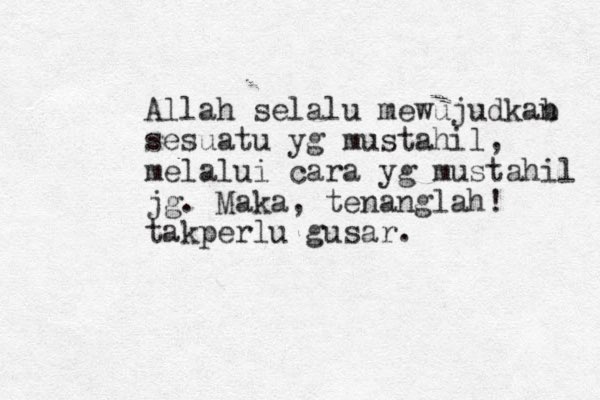 Allah selalu mewujudkan
sesuatu yg mustahil,
melalui cara yg mustahil
jg. Maka, tenanglah!
takperlu gusar.